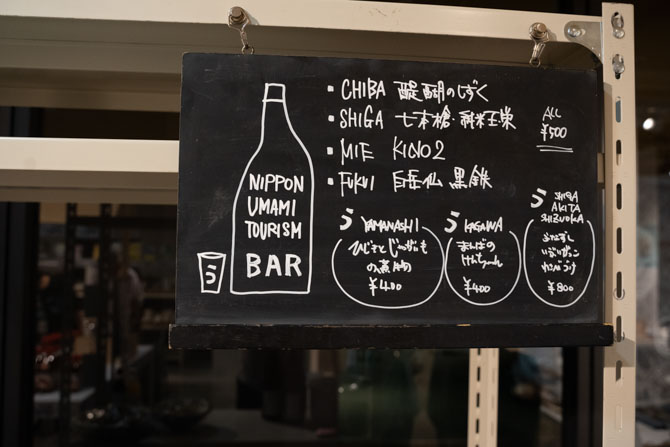 NIPPON
UMAMI
TOURISM
BAR
う
・CHIBA 醍醐のしずく
・SHIGA 七本槍・純米玉栄
・MIE KINO2
・FUKUI 白岳仙 黒鉄
ALL
¥500
う YAMANASHI
ひじきとじゃがいも
の煮物
¥400
う KAGAWA
まんばの
けんちゃん
¥400
う SHIGA
AKITA
SHIZUOKA
ふなずし
いぶりがっこ
わさびづけ
¥800